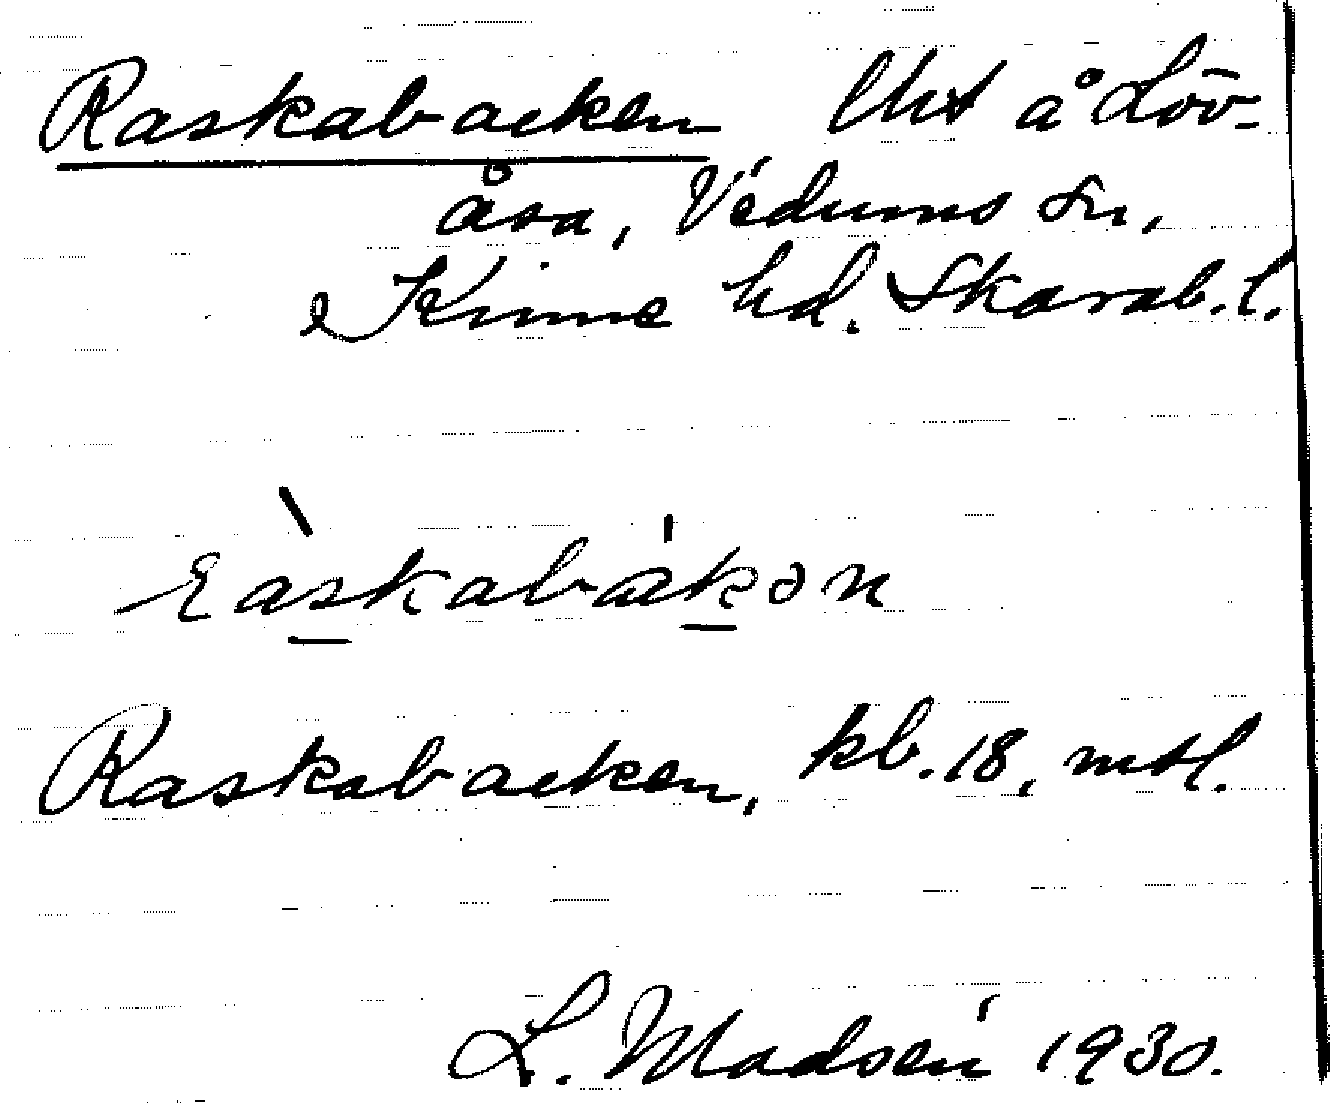 Raskabacken lht å Löv-
åsa, Vedums sn,
Kinne hd. Skarab. l.
ràskabakən
Raskabacken, kb. 18, mtl.
L. Madsén 1930.